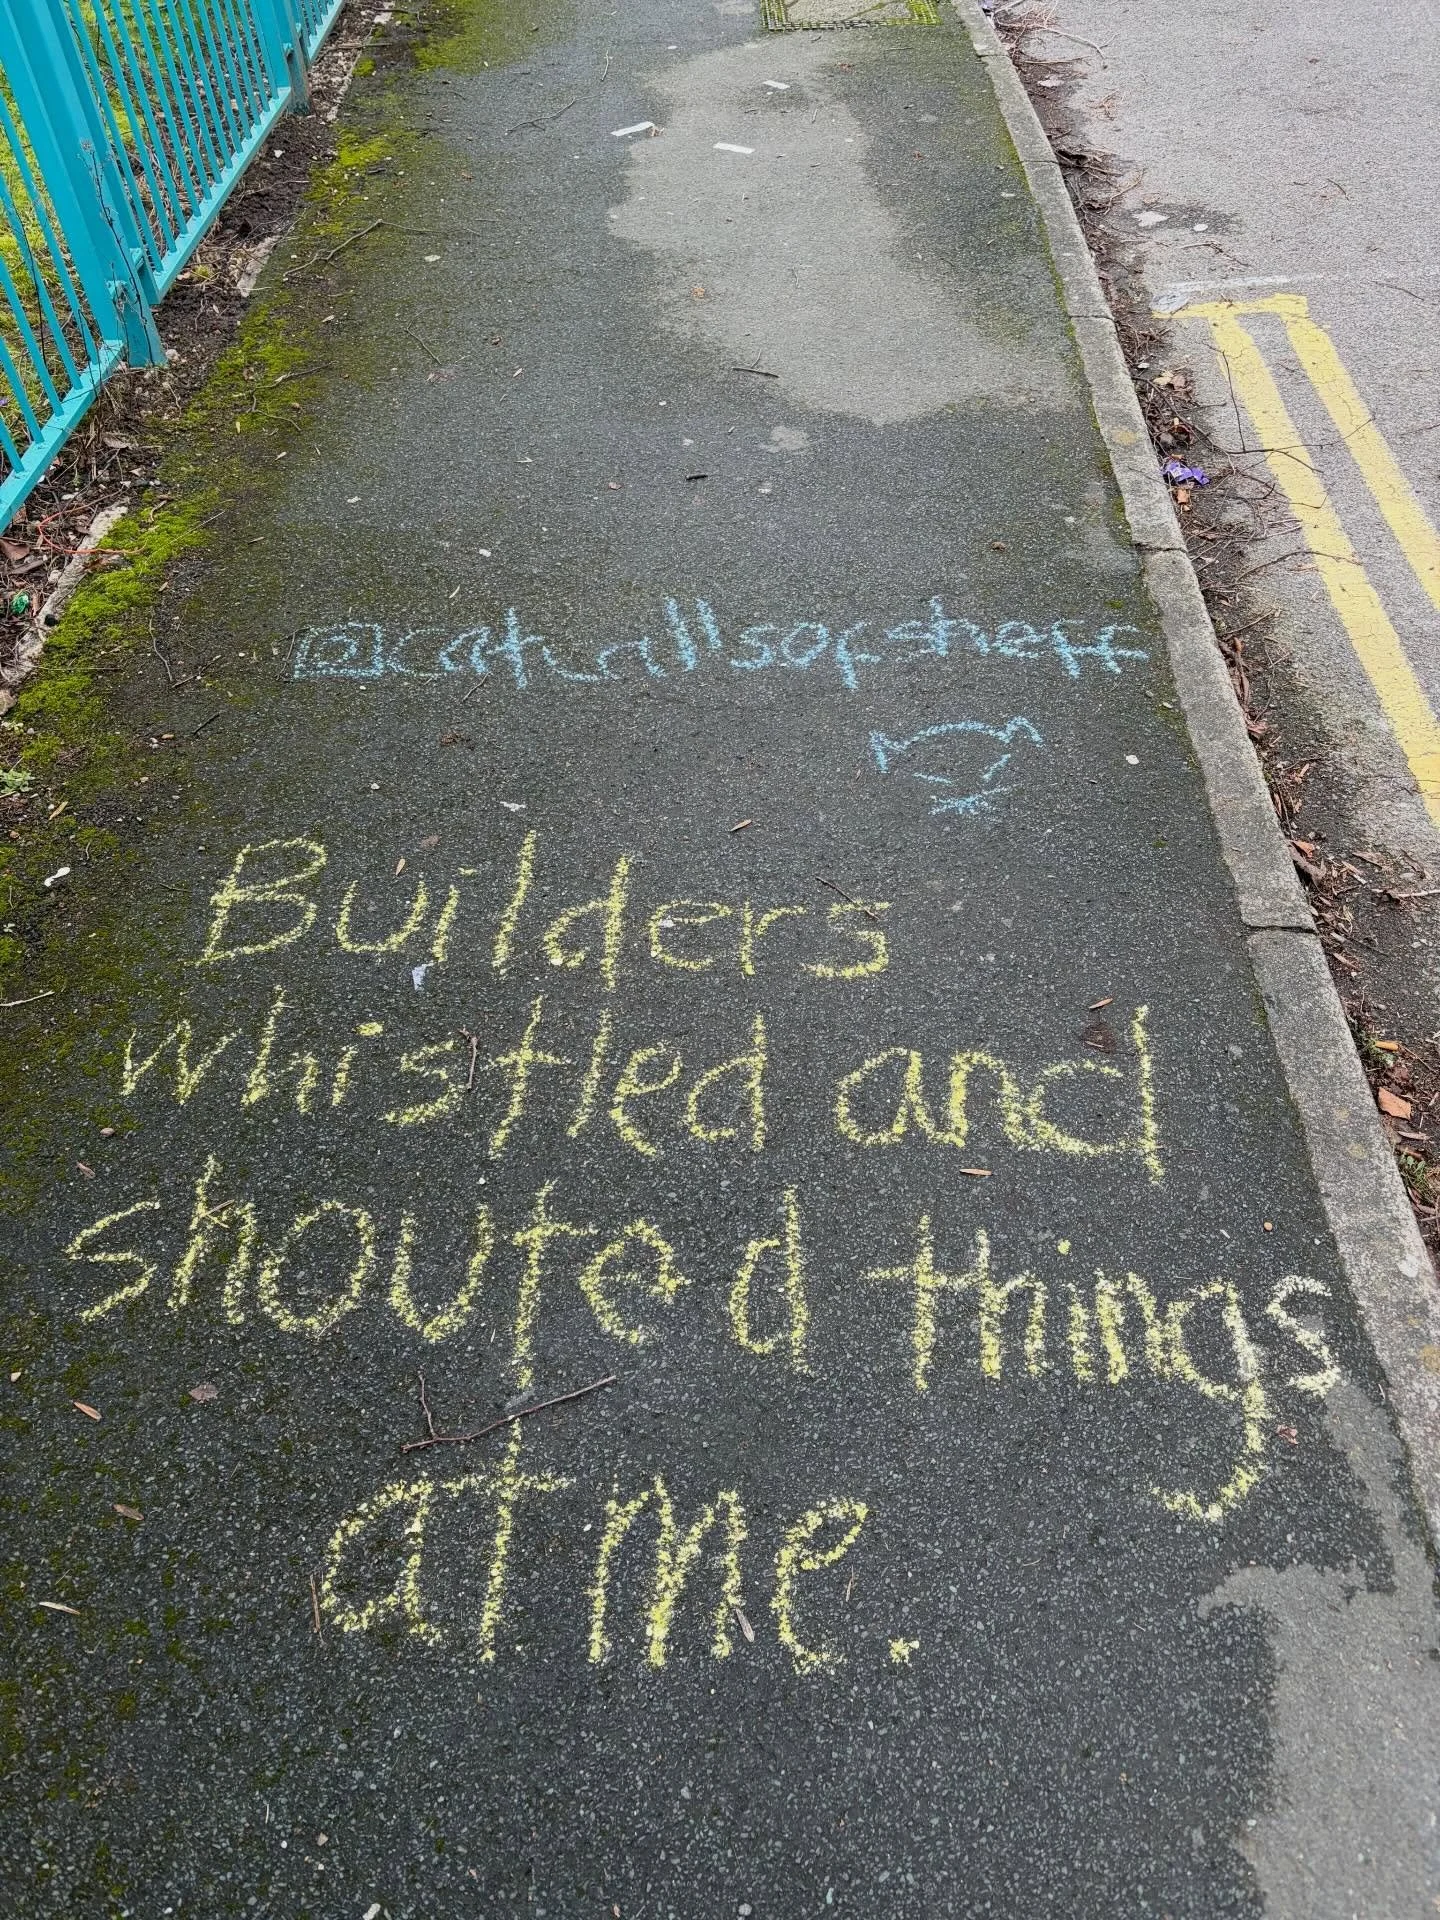 @catcallsofsheff
Builders
whistled and
shouted things
at me.